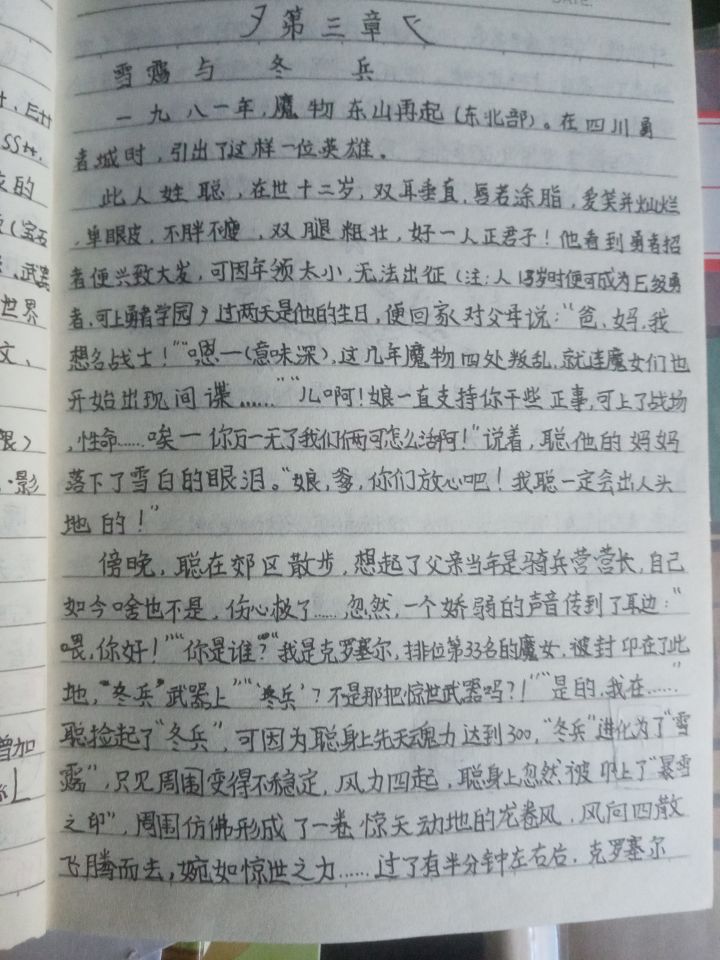 DATE.
第三章
雪鹀与冬兵
一九八一年,魔物东山再起(东北部)。在四川勇
者城时,引出了这样一位英雄。
此人姓聪,在世十二岁,双耳垂直,唇若涂脂,爱笑并灿烂
,单眼皮,不胖不瘦,双腿粗壮,好一人正君子!他看到勇者招
者便兴致大发,可因年须太小,无法出征(注:人13岁时便可成为E级勇
者,可上勇者学园)过两天是他的生日,便回家对父母说:“爸,妈,我
想名战士!”“嗯一(意味深),这几年魔物四处叛乱,就连魔女们也
开始出现间谍……”“儿啊!娘一直支持你干些正事,可上了战场
,性命……唉一你万一无了我们俩可怎么活啊!”说着,聪他的妈妈
落下了雪白的眼泪。“娘,爹,你们放心吧!我聪一定会出人头
地的!”
傍晚,聪在郊区散步,想起了父亲当年是骑兵营营长,自己
如今啥也不是,伤心极了……忽然,一个娇弱的声音传到了耳边:“
喂,你好!”“你是谁?”“我是克罗塞尔,排位第33名的魔女,被封印在了此
地,“冬兵”武器上”“‘冬兵’?不是那把惊世武器吗?!”“是的,我在……”
聪捡起了“冬兵”,可因为聪身上先天魂力达到300,“冬兵”进化为了“雪
”,只见周围变得不稳定,风力四起,聪身上忽然被印上了“暴雪
之印”,周围仿佛形成了一卷惊天动地的龙卷风,风向四散
飞腾而去,婉如惊世之力……过了有半分钟左右后,克罗塞尔
EH
SSH.
的
(宝石
武器
世界
文、
)
影
曾加